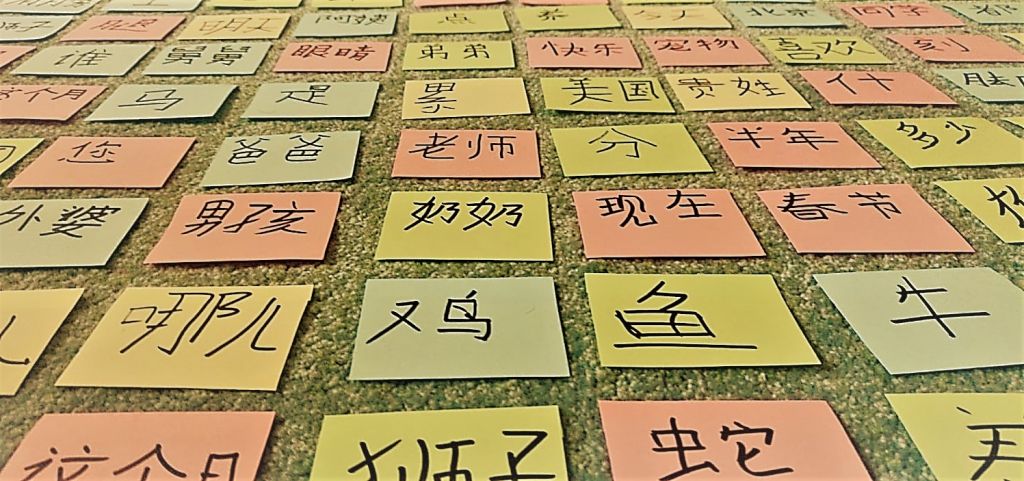 腿 明天 阿姨 点 茶 今天 北京 同学 都
谁 舅舅 眼睛 弟弟 快乐 宠物 喜欢 刻
这个月 马 是 累 美国 贵姓 什
您 爸爸 老师 分 半年 多少
外婆 男孩 奶奶 现在 春节
哪儿 鸡 鱼 牛
这个月 狮子 蛇